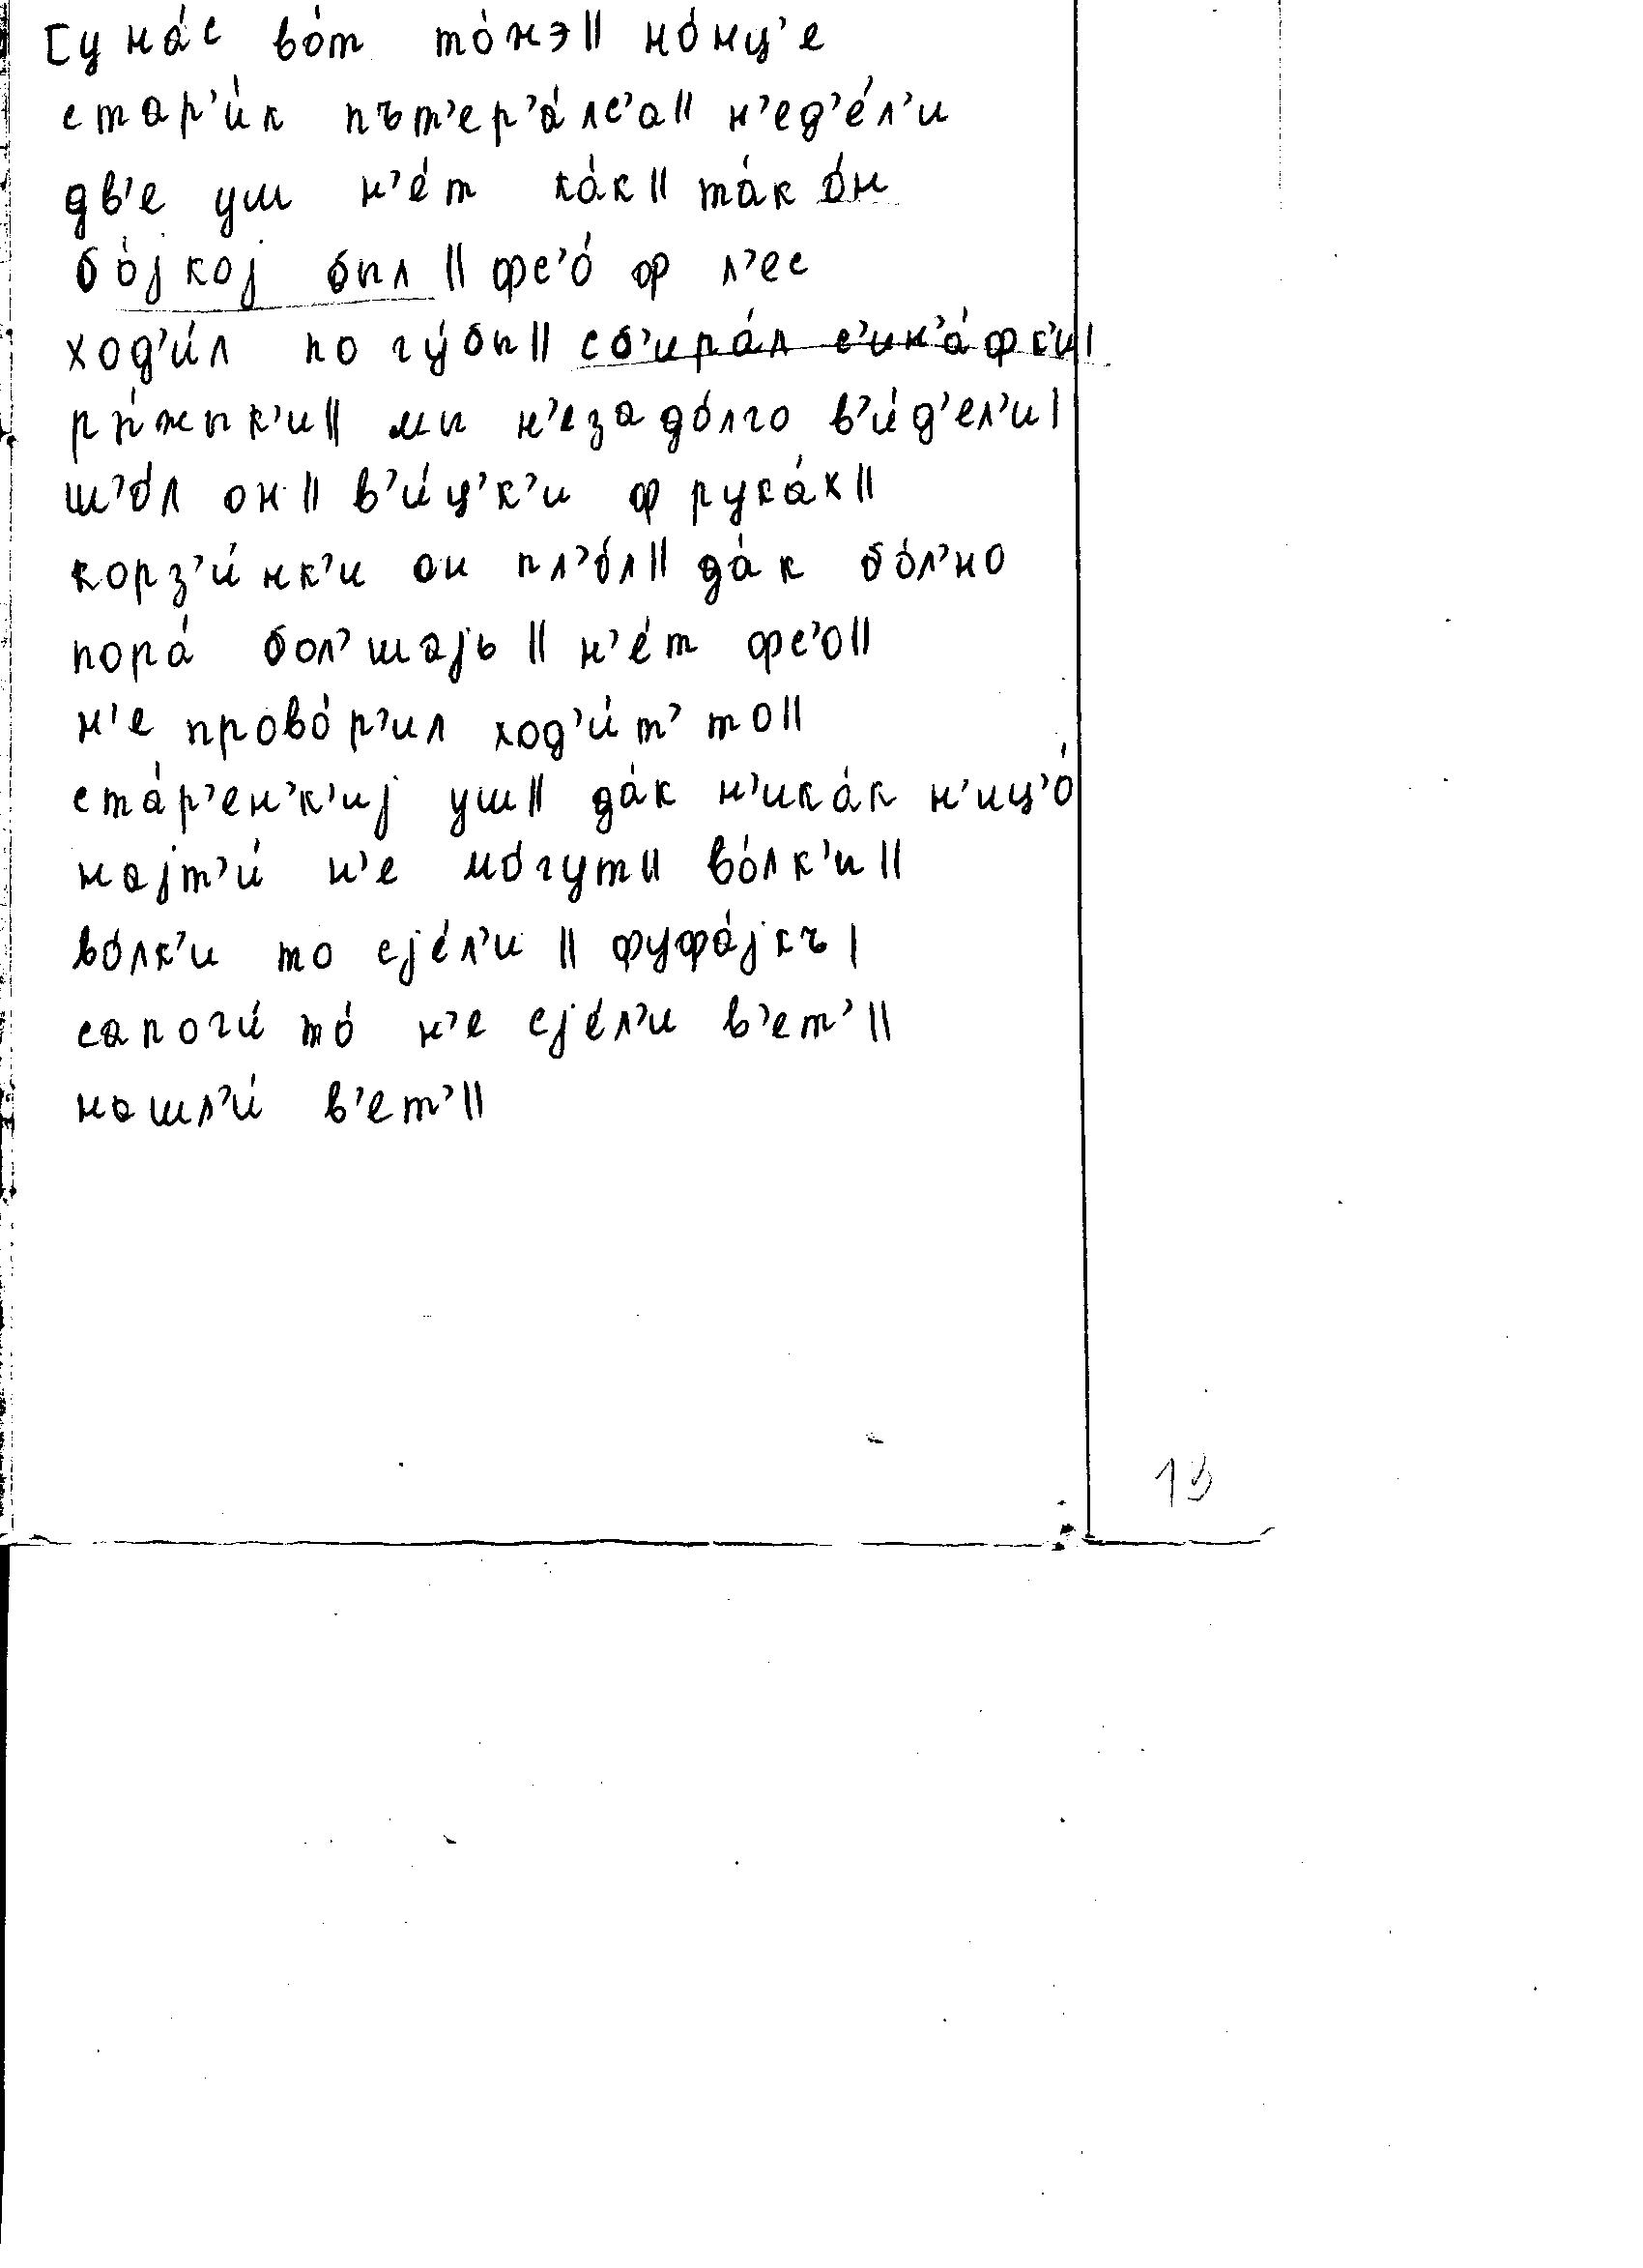 [у на́с во́т то́жэ‖ но́нц’е
стар’и́к път’ер’а́лс’а‖ н’ед’е́л’и
дв’е уш н’е́т ка́к‖ та́к о́н
бо́jкоj был‖ фс’о́ ф л’ес
ход’и́л по гу́бы‖ сб’ира́л с’ин’а́фк’и|
ры́жык’и‖ мы н’езадо́лго в’и́д’ел’и|
ш’о́л он‖ в’и́ц’к’и ф рука́х‖
корз’и́нк’и он пл’о́л‖ да́к бо́л’но
пора́ бол’шаjь‖ н’е́т фс’о‖
н’е прово́р’ил ход’и́т’ то‖
ста́р’ен’к’иj уш‖ да́к н’ика́к н’иц’о́
наjт’и́ н’е мо́гут‖ во́лк’и‖
во́лк’и то сjе́л’и‖ фуфа́jкъ|
сапоги́ то́ н’е сjе́л’и в’ет’‖
нашл’и́ в’ет’‖
13